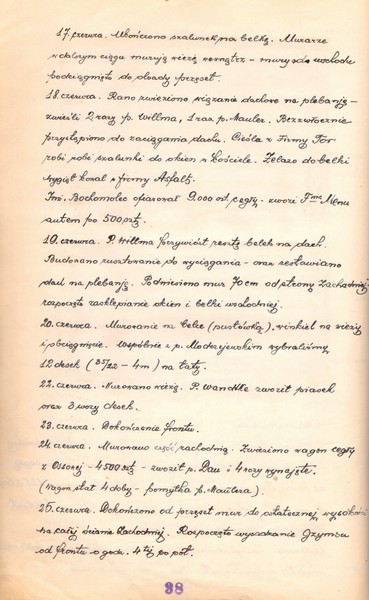 17. czerwca. Ukończono szalunek na belkę. Murarze
w dalszym ciągu murują wieżę zewnątrz - mury od wschodu
podciągnięto do dwady przęseł.
18. czerwca. Rano zwieziono wiązanie dachowe na plebanję -
zwieźli 2 razy p. Willma, 1 raz p. Mauler. Bezzwłocznie
przystąpiono do zaciągania dachu. Cieśla z Firmy Tor
robi szalunki do okien w kościele. Żelazo do belki
wygiął kowal z firmy Asfalt.
Inż. Bochomolec ofiarował 9.000 szt. cegły - zwozi Menu
autem po 500 szt.
19. czerwca. P. Willma przywiózł resztę belek na dach.
Budowano rusztowanie do wyciągania - oraz zestawiano
dach na plebanję. Podniesiono mur 70 cm od strony Zachodniej
rozpoczęto zasklepianie okien i belki wschodniej.
20. czerwca. Murowanie na belce (pustówka), winkiel na wieży
i obciągnięcie. Wspólnie z p. Modrzejewskim wybraliśmy
12 desek (35/22 - 4 m) na łaty.
22. czerwca. Murowano wieżę. P. Wandtke zwoził piasek
oraz 3 wozy desek.
23. czerwca. Dokończenie frontu.
24. czerwca. Murowano część zachodnią. Zwieziono wagon cegły
z Ossowej - 4500 szt - zwoził p. Dau i 4 wozy wynajęte.
(Wagon stał 4 doby - pomyłka p. Maulera).
25. czerwca. Dokończono od przęseł mur do ostatecznej wysokości
na całej ścianie Zachodniej. Rozpoczęto wyszakanie Gzymsu
od frontu o godz. 4 tej po poł.
38